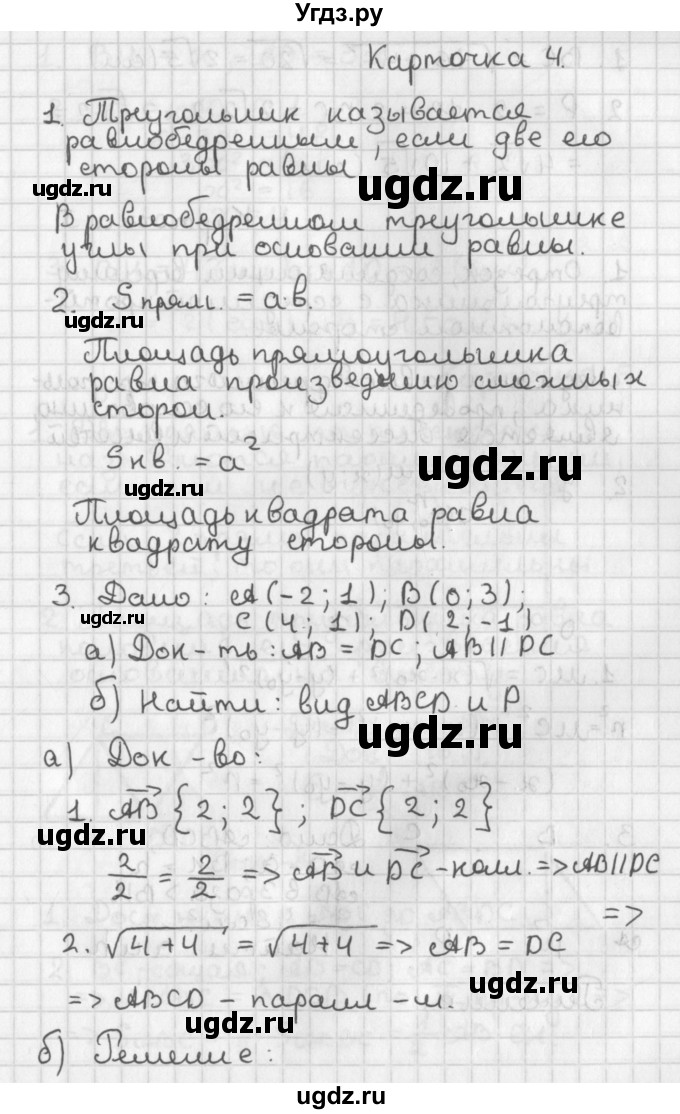 Угдз.ру
Карточка 4.
1. Треугольник называется
равнобедренным, если две его
стороны равны
uгdz.ru
uгdz.ru
В равнобедренном треугольнике
углы при основании равны.
2. Sпрям. = ав.
uгdz.ru
Площадь прямоугольника
равна произведению смежных
сторон.
Sкв. = a²
uгdz.ru
uгdz.ru
Площадь квадрата равна
квадрату стороны.
3. Дано: A(-2; 1); B(0; 3);
C(4; 1); D(2; -1)
uгdz.ru
а) Док-ть: AB = DC; AB || DC
б) Найти: вид ABCD и P.
uгdz.ru
а) Док-во:
1. AB {2; 2}; DC {2; 2}
uгdz.ru
2/2 = 2/2 => AB и DC - колл. => AB || DC
=>
2. √4+4 = √4+4 => AB = DC
uгdz.ru
=> ABCD - паралл-м.
uгdz.ru
б) Решение:
uгdz.ru